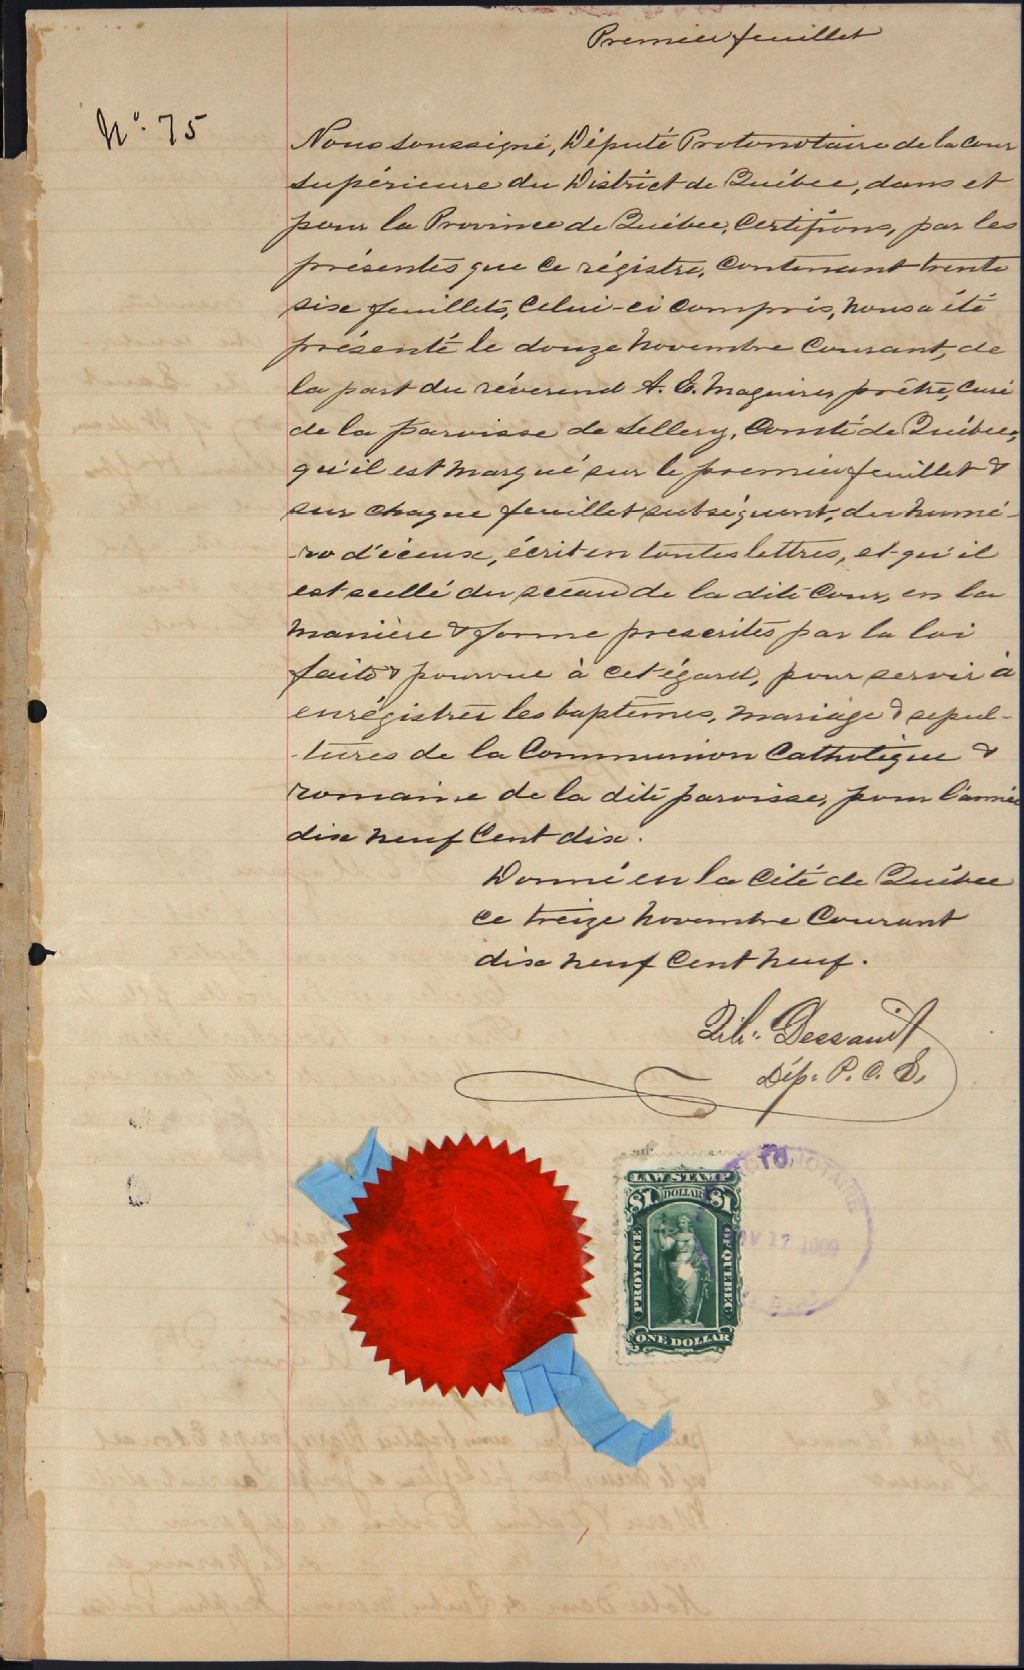 Premier feuillet
No. 75
Nous soussigné, Député Protonotaire de la Cour
supérieure du District de Québec, dans et
pour la Province de Québec, Certifions, par les
présentes que ce régistre, contenant trente
six feuillets, celui-ci compris, nous a été
présenté le douze Novembre Courant, de
la part du révérend A. E. Maguire, prêtre, curé
de la paroisse de Sillery, Comté de Québec,
qu'il est marqué sur le premier feuillet &
sur chaque feuillet subséquent, du numé-
-ro d'iceux, écrit en toutes lettres, et qu'il
est scellé du sceau de la dite Cour, en la
manière & forme prescrites par la loi
faite & pourvue à cet égard, pour servir à
enrégistrer les baptêmes, mariage & sepul-
-tures de la Communion Catholique &
romaine de la dite paroisse, pour l'année
dix neuf Cent dix.
Donné en la Cité de Québec
ce treize Novembre Courant
dix neuf Cent Neuf.
Dessault
Dép. P. C. S.
LAW STAMP
$1 DOLLAR $1
PROVINCE OF QUEBEC
ONE DOLLAR
1909